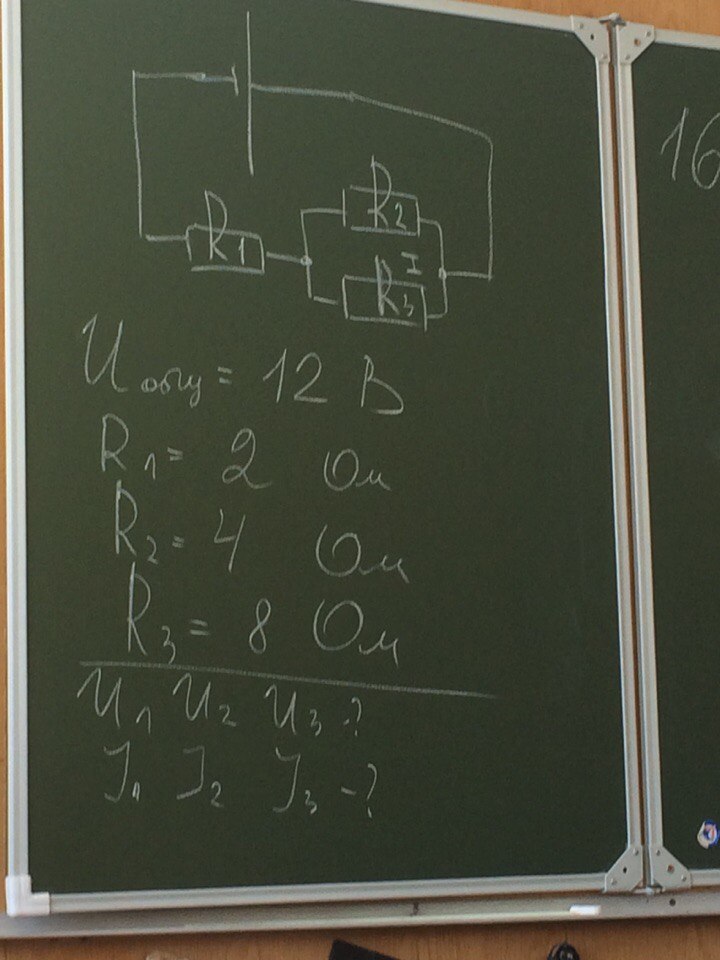 R1
R2
I
R3
Uобщ = 12 В
R1 = 2 Ом
R2 = 4 Ом
R3 = 8 Ом
U1 U2 U3 ?
I1 I2 I3 - ?
16